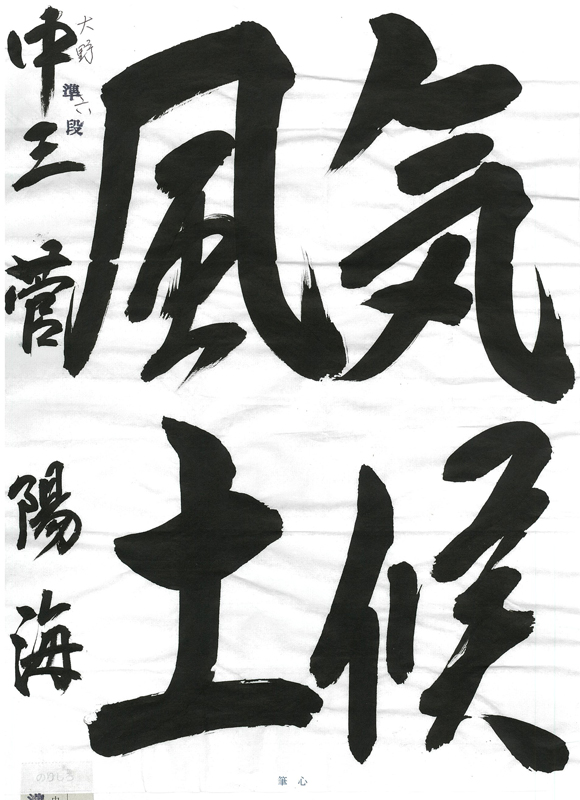 気候
風土
中三 菅 陽海
大野
準六段
筆心
のりしろ